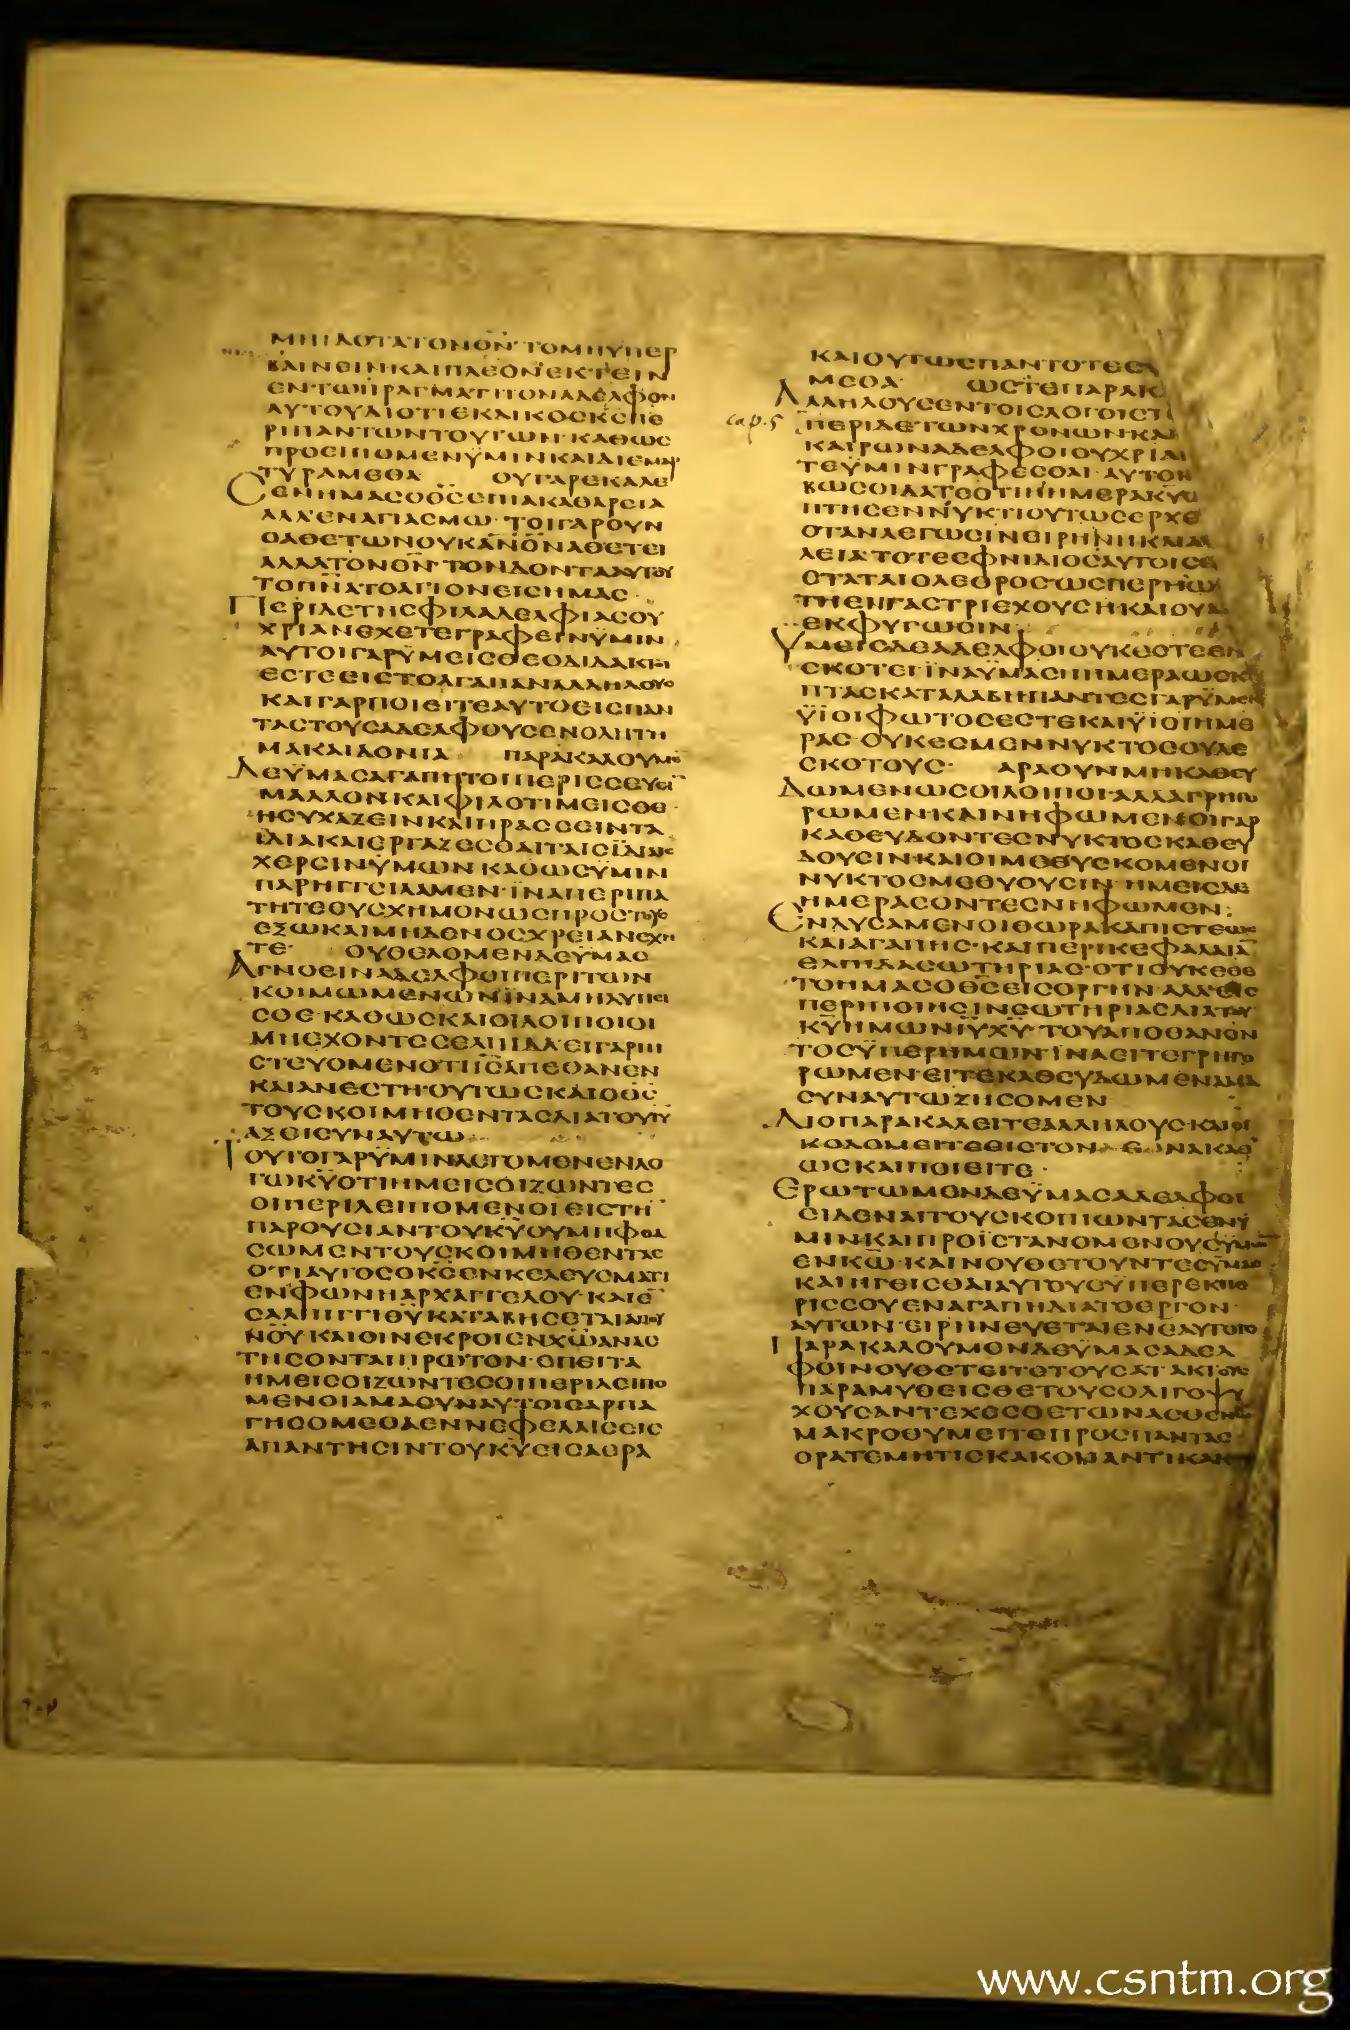 ΜΗΕΙΔΟΤΑΤΟΝΘ̅Ν̅·ΤΟΜΗΥΠΕΡ
ΒΑΙΝΕΙΝΚΑΙΠΛΕΟΝΕΚΤΕΙΝ
ΕΝΤΩΠΡΑΓΜΑΤΙΤΟΝΑΔΕΛΦΟΝ
ΑΥΤΟΥΔΙΟΤΙΕΚΔΙΚΟΣΚ̅Σ̅ΠΕ
ΡΙΠΑΝΤΩΝΤΟΥΤΩΝ·ΚΑΘΩΣ
ΠΡΟΕΙΠΟΜΕΝΫΜΙΝΚΑΙΔΙΕΜΑΡ
ΤΥΡΑΜΕΘΑ ΟΥΓΑΡΕΚΑΛΕ
ΣΕΝΗΜΑΣΟΘ̅Σ̅ΕΠΙΑΚΑΘΑΡΣΙΑ
ΑΛΛΕΝΑΓΙΑΣΜΩ·ΤΟΙΓΑΡΟΥΝ
ΟΑΘΕΤΩΝΟΥΚΑ̅Ν̅Ο̅Ν̅ΑΘΕΤΕΙ
ΑΛΛΑΤΟΝΘ̅Ν̅·ΤΟΝΔΟΝΤΑΑΥΤΟΥ
ΤΟΠ̅Ν̅Α̅ΤΟΑΓΙΟΝΕΙΣΗΜΑΣ·
ΠΕΡΙΔΕΤΗΣΦΙΛΑΔΕΛΦΙΑΣΟΥ
ΧΡΙΑΝΕΧΕΤΕΓΡΑΦΕΙΝΫΜΙΝ
ΑΥΤΟΙΓΑΡΫΜΕΙΣΘΕΟΔΙΔΑΚΤΟΙ
ΕΣΤΕΕΙΣΤΟΑΓΑΠΑΝΑΛΛΗΛΟΥΣ
ΚΑΙΓΑΡΠΟΙΕΙΤΕΑΥΤΟΕΙΣΠΑΝ
ΤΑΣΤΟΥΣΑΔΕΛΦΟΥΣΕΝΟΛΗΤΗ
ΜΑΚΑΙΔΟΝΙΑ ΠΑΡΑΚΑΛΟΥΜΕ̅
ΔΕΫΜΑΣΑΓΑΠΗΤΟΙΠΕΡΙΣΣΕΥΕΙ̅
ΜΑΛΛΟΝΚΑΙΦΙΛΟΤΙΜΕΙΣΘΕ·
ΗΣΥΧΑΖΕΙΝΚΑΙΠΡΑΣΣΕΙΝΤΑ
ΙΔΙΑΚΑΙΕΡΓΑΖΕΣΘΑΙΤΑΙΣΪΔΙΑΙΣ
ΧΕΡΣΙΝΫΜΩΝΚΑΘΩΣΫΜΙΝ
ΠΑΡΗΓΓΕΙΛΑΜΕΝ·ΪΝΑΠΕΡΙΠΑ
ΤΗΤΕΟΥΣΧΗΜΟΝΩΣΠΡΟΣΤΟΥΣ
ΕΞΩΚΑΙΜΗΔΕΝΟΣΧΡΕΙΑΝΕΧΗ
ΤΕ· ΟΥΘΕΛΟΜΕΝΔΕΫΜΑΣ
ΑΓΝΟΕΙΝΑΔΕΛΦΟΙΠΕΡΙΤΩΝ
ΚΟΙΜΩΜΕΝΩΝΪΝΑΜΗΛΥΠΕΙ
ΣΘΕ·ΚΑΘΩΣΚΑΙΟΙΛΟΙΠΟΙΟΙ
ΜΗΕΧΟΝΤΕΣΕΛΠΙΔΑ·ΕΙΓΑΡΠΙ
ΣΤΕΥΟΜΕΝΟΤΙΙ̅Σ̅ΑΠΕΘΑΝΕΝ
ΚΑΙΑΝΕΣΤΗ·ΟΥΤΩΣΚΑΙΟΘ̅Σ̅
ΤΟΥΣΚΟΙΜΗΘΕΝΤΑΣΔΙΑΤΟΥΙ̅Υ̅
ΑΞΕΙΣΥΝΑΥΤΩ
ΤΟΥΤΟΓΑΡΫΜΙΝΛΕΓΟΜΕΝΕΝΛΟ
ΓΩΚ̅Υ̅ΟΤΙΗΜΕΙΣΟΙΖΩΝΤΕΣ
ΟΙΠΕΡΙΛΕΙΠΟΜΕΝΟΙΕΙΣΤΗ̅
ΠΑΡΟΥΣΙΑΝΤΟΥΚ̅Υ̅ΟΥΜΗΦΘΑ
ΣΩΜΕΝΤΟΥΣΚΟΙΜΗΘΕΝΤΑΣ
ΟΤΙΑΥΤΟΣΟΚ̅Σ̅ΕΝΚΕΛΕΥΣΜΑΤΙ
ΕΝΦΩΝΗΑΡΧΑΓΓΕΛΟΥ·ΚΑΙΕ̅
ΣΑΛΠΙΓΓΙΘ̅Υ̅ΚΑΤΑΒΗΣΕΤΑΙΑΠΟΥ
ΝΟΥΚΑΙΟΙΝΕΚΡΟΙΕΝΧ̅Ω̅ΑΝΑΣ
ΤΗΣΟΝΤΑΙΠΡΩΤΟΝ·ΕΠΕΙΤΑ
ΗΜΕΙΣΟΙΖΩΝΤΕΣΟΙΠΕΡΙΛΕΙΠΟ
ΜΕΝΟΙΑΜΑΣΥΝΑΥΤΟΙΣΑΡΠΑ
ΓΗΣΟΜΕΘΑΕΝΝΕΦΕΛΑΙΣΕΙΣ
ΑΠΑΝΤΗΣΙΝΤΟΥΚ̅Υ̅ΕΙΣΑΕΡΑ
ΚΑΙΟΥΤΩΣΠΑΝΤΟΤΕΣ
ΜΕΘΑ· ΩΣΤΕΠΑΡΑΚ
ΑΛΛΗΛΟΥΣΕΝΤΟΙΣΛΟΓΟΙΣΤ
cap. 5 ΠΕΡΙΔΕΤΩΝΧΡΟΝΩΝΚΑΙ
ΚΑΙΡΩΝΑΔΕΛΦΟΙΟΥΧΡΙΑ
ΤΕΫΜΙΝΓΡΑΦΕΣΘΑΙ·ΑΥΤΟΙ
ΒΩΣΟΙΔΑΤΕΟΤΙΗΗΜΕΡΑΚ̅Υ̅
ΠΤΗΣΕΝΝΥΚΤΙΟΥΤΩΣΕΡΧΕ
ΟΤΑΝΛΕΓΩΣΙΝΕΙΡΗΝΗΚΑΙΑ
ΛΕΙΑΤΟΤΕΕΦΝΙΔΙΟΣΑΥΤΟΙΣΕ
ΣΤΑΤΑΙΟΛΕΘΡΟΣΩΣΠΕΡΗΩ
ΤΗΕΝΓΑΣΤΡΙΕΧΟΥΣΗΚΑΙΟΥΜ
ΕΚΦΥΓΩΣΙΝ
ΥΜΕΙΣΔΕΑΔΕΛΦΟΙΟΥΚΕΣΤΕΕΝ
ΣΚΟΤΕΙΪΝΑΫΜΑΣΗΗΜΕΡΑΩΣΚ
ΠΤΑΣΚΑΤΑΛΑΒΗΠΑΝΤΕΣΓΑΡΫΜΕΙΣ
ΫΙΟΙΦΩΤΟΣΕΣΤΕΚΑΙΫΙΟΙΗΜΕ
ΡΑΣ·ΟΥΚΕΣΜΕΝΝΥΚΤΟΣΟΥΔΕ
ΣΚΟΤΟΥΣ· ΑΡΑΟΥΝΜΗΚΑΘΕΥ
ΔΩΜΕΝΩΣΟΙΛΟΙΠΟΙ·ΑΛΛΑΓΡΗΓΟ
ΡΩΜΕΝΚΑΙΝΗΦΩΜΕΝΟΙΓΑΡ
ΚΑΘΕΥΔΟΝΤΕΣΝΥΚΤΟΣΚΑΘΕΥ
ΔΟΥΣΙΝ·ΚΑΙΟΙΜΕΘΥΣΚΟΜΕΝΟΙ
ΝΥΚΤΟΣΜΕΘΥΟΥΣΙΝ·ΗΜΕΙΣΔΕ
ΗΜΕΡΑΣΟΝΤΕΣΝΗΦΩΜΕΝ·
ΕΝΔΥΣΑΜΕΝΟΙΘΩΡΑΚΑΠΙΣΤΕΩΣ
ΚΑΙΑΓΑΠΗΣ·ΚΑΙΠΕΡΙΚΕΦΑΛΑΙΑ̅
ΕΛΠΙΔΑΣΩΤΗΡΙΑΣ·ΟΤΙΟΥΚΕΘΕ
ΤΟΗΜΑΣΟΘ̅Σ̅ΕΙΣΟΡΓΗΝ·ΑΛΛΕΙΣ
ΠΕΡΙΠΟΙΗΣΙΝΣΩΤΗΡΙΑΣΔΙΑΤΟΥ
Κ̅Υ̅ΗΜΩΝΙ̅Υ̅Χ̅Υ̅·ΤΟΥΑΠΟΘΑΝΟΝ
ΤΟΣΫΠΕΡΗΜΩΝ·ΪΝΑΕΙΤΕΓΡΗΓΟ
ΡΩΜΕΝ·ΕΙΤΕΚΑΘΕΥΔΩΜΕΝΑΜΑ
ΣΥΝΑΥΤΩΖΗΣΟΜΕΝ
ΔΙΟΠΑΡΑΚΑΛΕΙΤΕΑΛΛΗΛΟΥΣ·ΚΑΙΟΙ
ΚΟΔΟΜΕΙΤΕΕΙΣΤΟΝΕΝΑΚΑΘ
ΩΣΚΑΙΠΟΙΕΙΤΕ·
ΕΡΩΤΩΜΕΝΔΕΫΜΑΣΑΔΕΛΦΟΙ
ΕΙΔΕΝΑΙΤΟΥΣΚΟΠΙΩΝΤΑΣΕΝΫ
ΜΙΝ·ΚΑΙΠΡΟΪΣΤΑΝΟΜΕΝΟΥΣΫΜΩ̅
ΕΝΚ̅Ω̅·ΚΑΙΝΟΥΘΕΤΟΥΝΤΕΣΫΜΑΣ
ΚΑΙΗΓΕΙΣΘΑΙΑΥΤΟΥΣΫΠΕΡΕΚΠΕ
ΡΙΣΣΟΥΕΝΑΓΑΠΗΔΙΑΤΟΕΡΓΟΝ
ΑΥΤΩΝ·ΕΙΡΗΝΕΥΕΤΑΙΕΝΕΑΥΤΟΙΣ
ΠΑΡΑΚΑΛΟΥΜΕΝΔΕΫΜΑΣΑΔΕΛ
ΦΟΙΝΟΥΘΕΤΕΙΤΕΤΟΥΣΑΤΑΚΤΟΥΣ
ΠΑΡΑΜΥΘΕΙΣΘΕΤΟΥΣΟΛΙΓΟΨΥ
ΧΟΥΣΑΝΤΕΧΕΣΘΕΤΩΝΑΣΘΕΝ
ΜΑΚΡΟΘΥΜΕΙΤΕΠΡΟΣΠΑΝΤΑΣ
ΟΡΑΤΕΜΗΤΙΣΚΑΚΟΝΑΝΤΙΚΑΚ
www.csntm.org